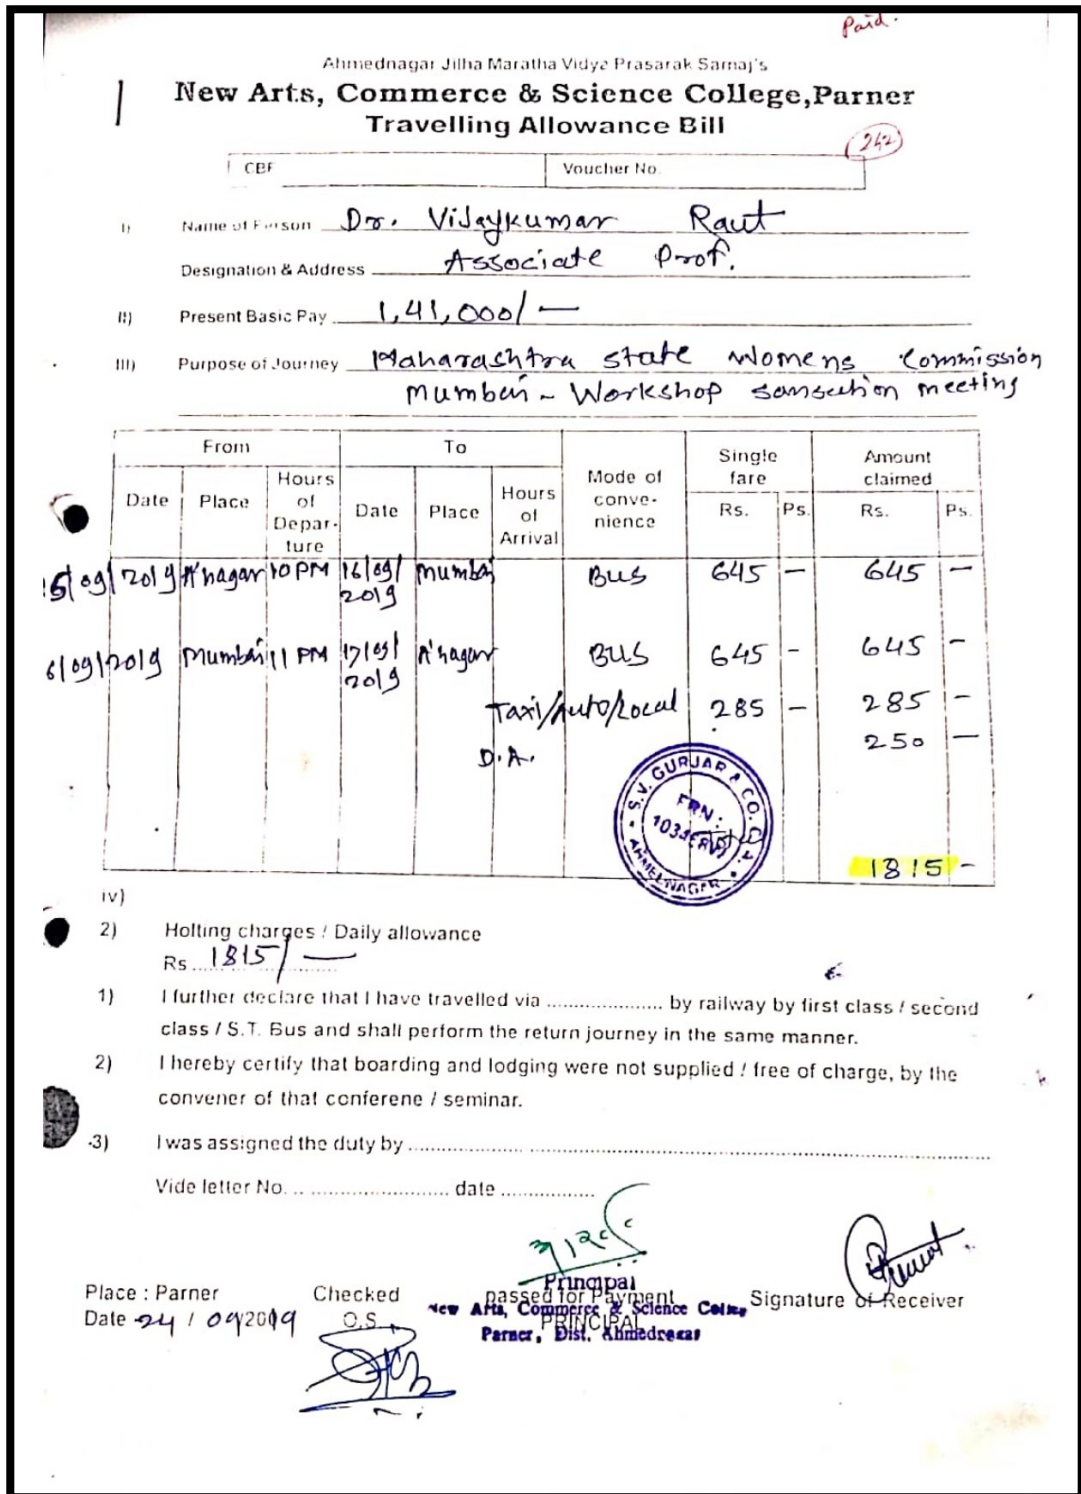 Paid.
Ahmednagar Jilha Maratha Vidya Prasarak Samaj's
New Arts, Commerce & Science College,Parner
Travelling Allowance Bill
242
CBF Voucher No.
I) Name of Person Dr. Vijaykumar Raut
Designation & Address Associate Prof.
II) Present Basic Pay 1,41,000/—
III) Purpose of Journey Maharashtra state Womens Commission
Mumbai - Workshop sansection meeting
From To Mode of conve-nience Single fare Amount claimed
Date Place Hours of Depar-ture Date Place Hours of Arrival Rs. Ps. Rs. Ps.
15/09/2019 A'nagar 10 PM 16/09/2019 Mumbai Bus 645 — 645 —
6/09/2019 Mumbai 11 PM 17/09/2019 A'nagar BUS 645 - 645 -
Taxi/Auto/Local 285 — 285 —
D.A. 250 —
S.V. GURJAR & CO. C.A.
FRN:
AHMEDNAGAR
1815 -
iv)
2) Holting charges / Daily allowance
Rs ..... 1815/—
1) I further declare that I have travelled via .................... by railway by first class / second
class / S.T. Bus and shall perform the return journey in the same manner.
2) I hereby certify that boarding and lodging were not supplied / free of charge, by the
convener of that conferene / seminar.
3) I was assigned the duty by ....................
Vide letter No. .................... date .................
Principal
Place : Parner Checked passed for Payment Signature of Receiver
New Arts, Commerce & Science College
Date 24 / 09/2019 O.S. PRINCIPAL
Parner, Dist. Ahmednagar